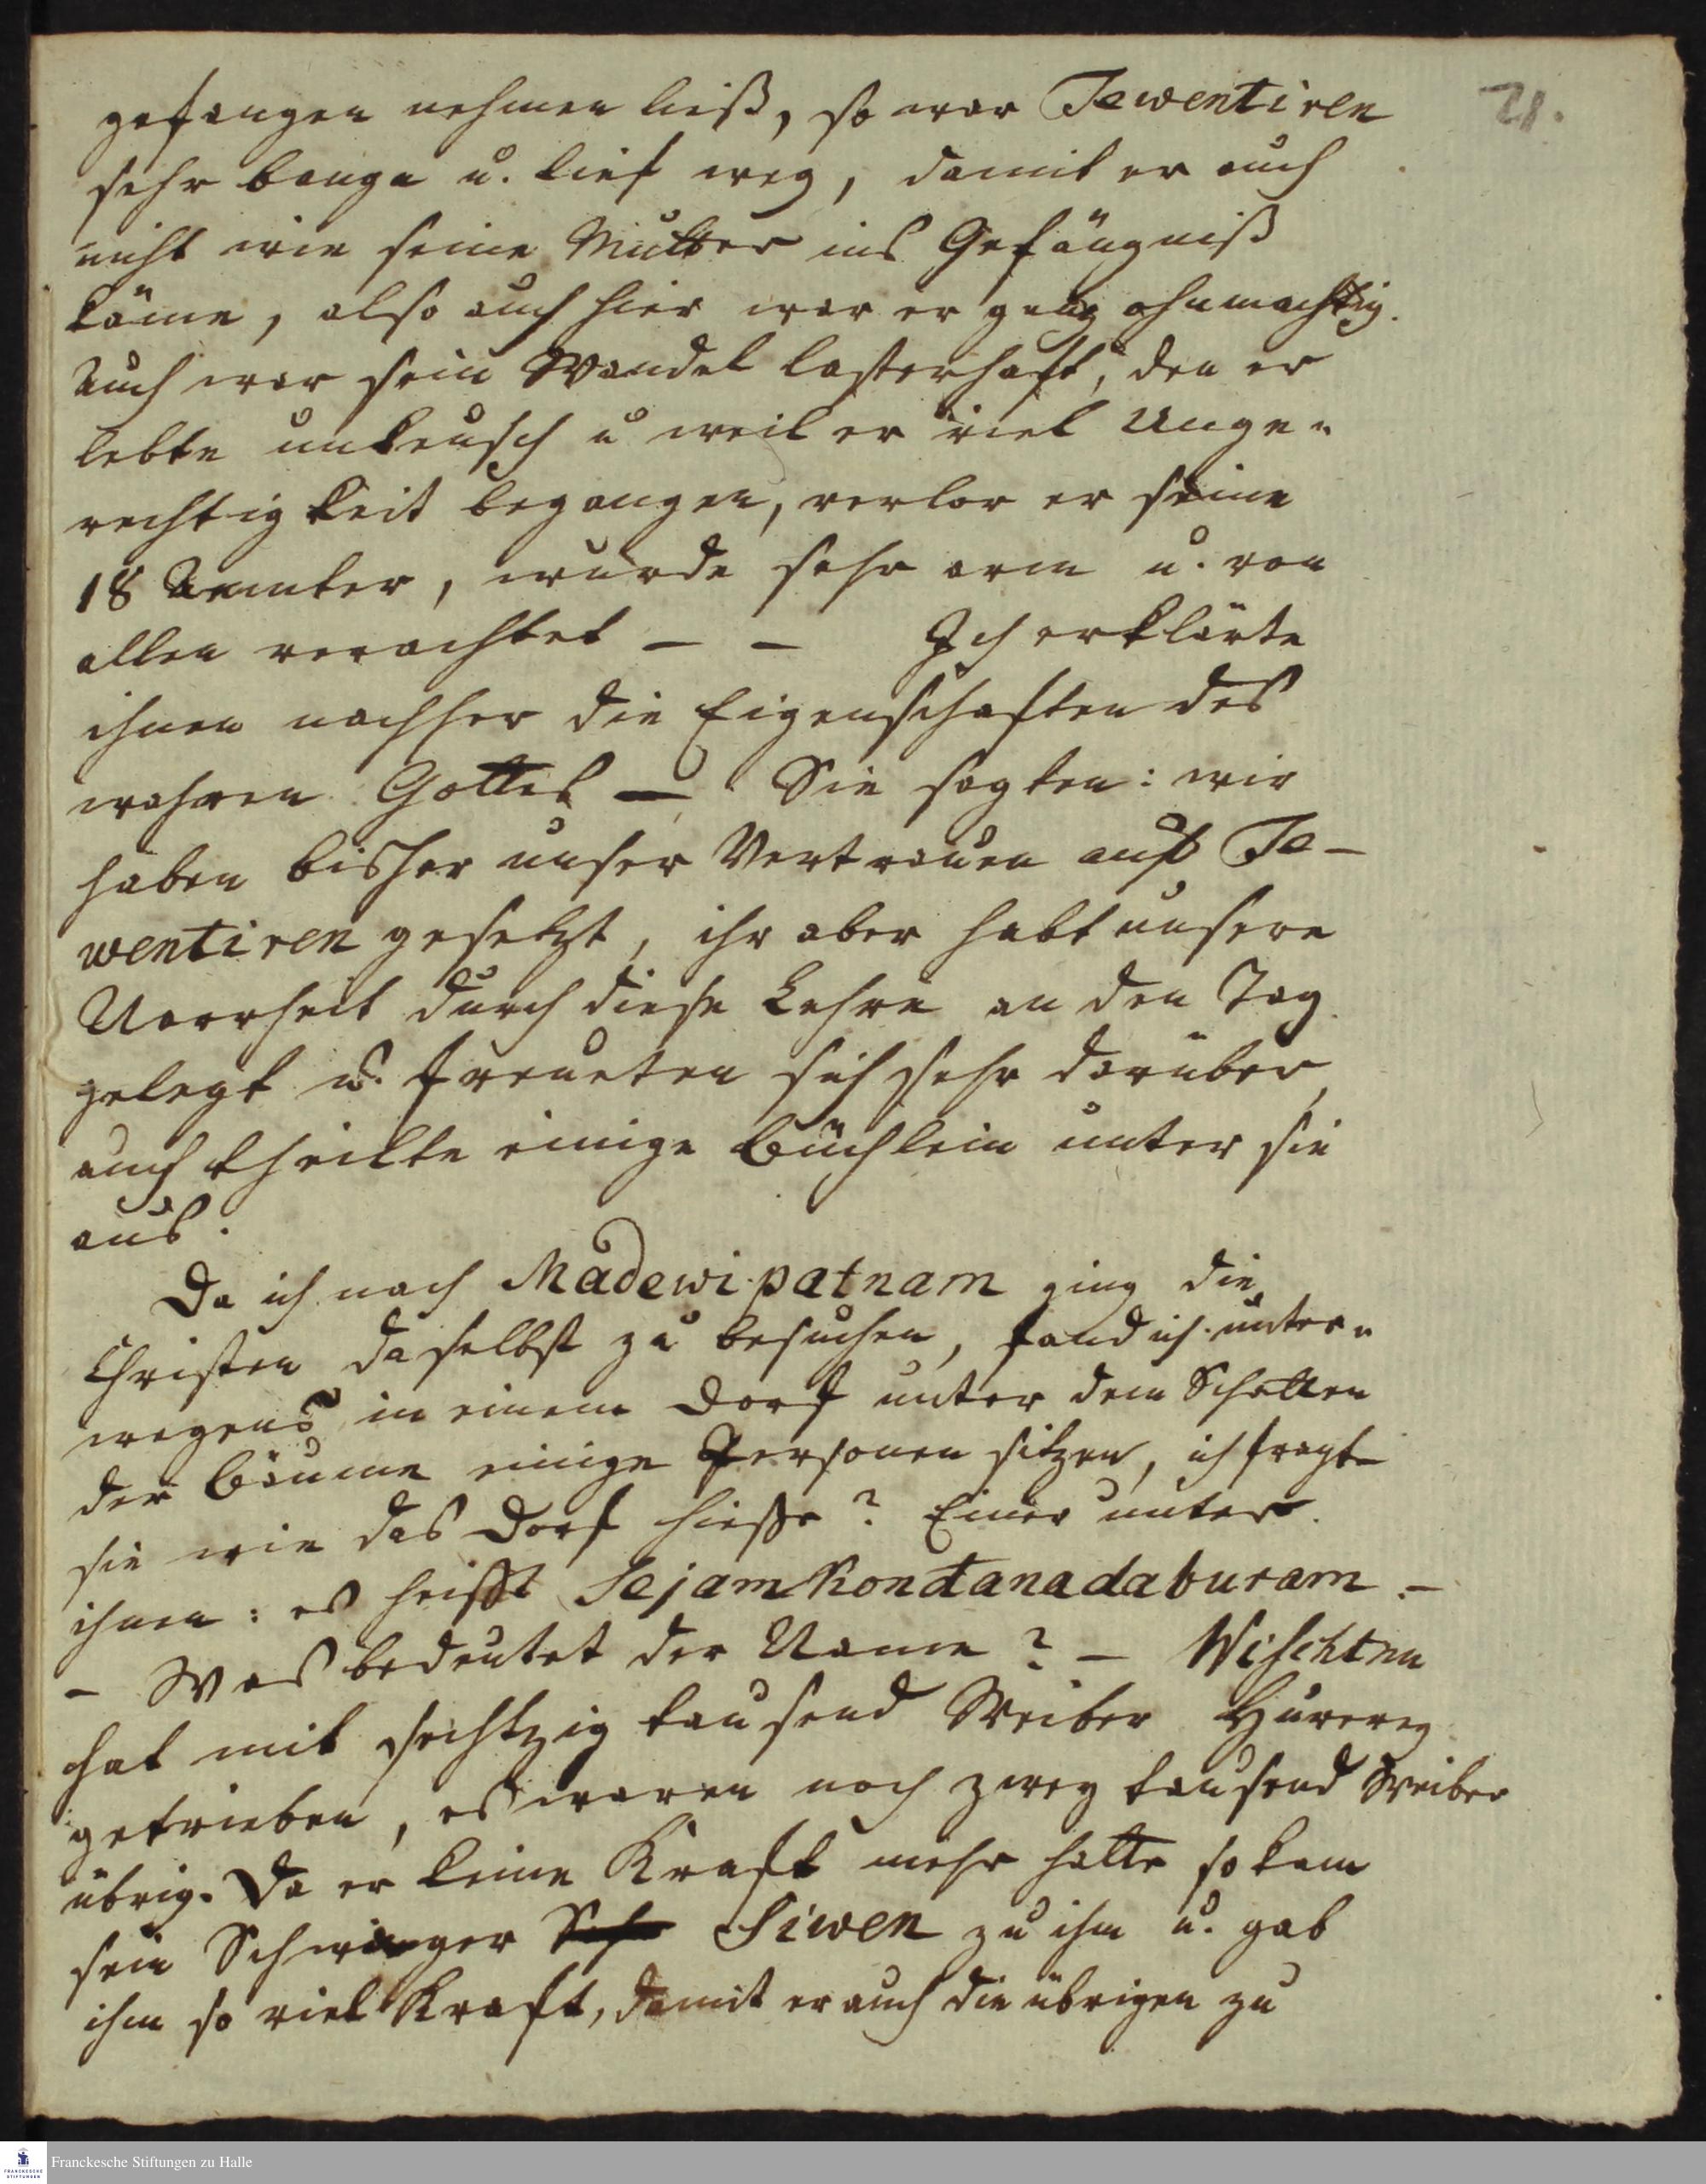 21.
gefangen nehmen ließ, so war Tewentiren
sehr bange u. lief weg, damit er auch
nicht wie seine Mutter ins Gefängniß
käme, also auch hier war er ganz ohnmachtig.
Auch war sein Wandel lasterhaft, den er
lebte unkeusch u weil er viel Unge-
rechtigkeit begangen, verlor er seine
18 Aemter, wurde sehr arm u. von
allen verachtet — — Ich erklärte
ihnen nachher die Eigenschaften des
wahren Gottes — Sie sagten: wir
haben bisher unser Vertrauen auf Te-
wentiren gesetzt, ihr aber habt unsere
Narrheit durch diese Lehre an den Tag
gelegt u. freueten sich sehr darüber,
auch theilte einige Büchlein unter sie
aus.
Da ich nach Madewipatnam ging die
Christen daselbst zu besuchen, fand ich unter-
wegens in einem Dorf unter dem Schatten
der Bäume einige Personen sitzen, ich fragte
sie wie das Dorf hieße? Einer unter
ihnen: es heißt Sejamkondanadaburam. —
— Was bedeutet der Name? — Wischtnu
hat mit sechtzig tausend Weiber Hurerey
getrieben, es waren noch zwey tausend Weiber
übrig. Da er keine Kraft mehr hatte so kam
sein Schwager Siwen zu ihm u. gab
ihm so viel Kraft, damit er auch die übrigen zu
Franckesche Stiftungen zu Halle